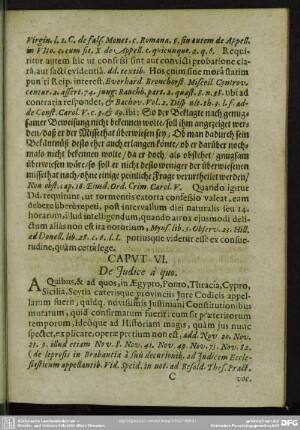 Virgin. l. 2. C. de fals. Monet. c. Romana. §. sin autem de Appell.
in VIto. c. cum sit. X de Appell. c. quicunque. 2. q. 6. Requi-
ritur autem hîc ut confessi sint aut convicti probatione cla-
râ, aut facti evidentiâ. dd. textib. Hos enim sine morâ statim
puniri Reip. interest. Everhard. Bronchorst. Miscell. Controv.
centur. 2. assert. 74. jung. Rauchb. part. 2. quæst. 8. n. 28. ubi ad
contraria respondet, & Bachov. Vol. 2. Disp.
de Const. Carol. V. ibi: So der Beklagte nach genug-
samer Beweisung nicht bekennen wolte, soll ihm angezeiget wer-
den, daß er der Missethat überwiesen sey; Ob man dadurch sein
Bekäntnüß desto eher auch erlangen könte, ob er darüber noch-
mals nicht bekennen wolte, da er doch, als obstehet, gnugsam
überwiesen wäre, so soll er nicht desto weniger der überwiesenen
missethat nach, ohne einige peinliche Frage verurtheilet werden,
Non obst. cap. 16. Eiusd. Ord. Crim. Carol. V. Quando igitur
Dd. requirunt, ut tormentis extorta confessio valeat, eam
debere libere repeti, post intervallum diei naturalis seu 24
horarum, illud intelligendum, quando atrox ejusmodi delic-
tum alias non est ita notorium, Myns. lib. 5. Observ. 23. Hill.
ad Donell. lib. 28. c. 6. l. L. potiusque videtur esse ex consue-
tudine, quàm certâ lege.
CAPUT VI.
De Judice à quo.
A Quibus, & ad quos, in Ægypto, Ponto, Thracia, Cypro,
Sicilia, Scytia caterisque provinciis Jure Codicis appel-
larum fuerit, quidq; novissimis Justiniani Constitutionibus
mutatum, quid confirmatum fuerit: cum sit præteritorum
temporum, ideóque ad Historiam magis, quàm jus nunc
spectet, explicate, operæ pretium non est, add. Nov. 20. Nov.
23. 3. illud etiam Nov. 8. Nov. 41. Nov. 49. Nov. 75. Nov. 82.
de leprosis in Brabantia à suis decurionib. ad Judicem Eccle-
siasticum appellantib. Vid. Speid. in not. ad Besold. Thes. Pract.
C
voc.